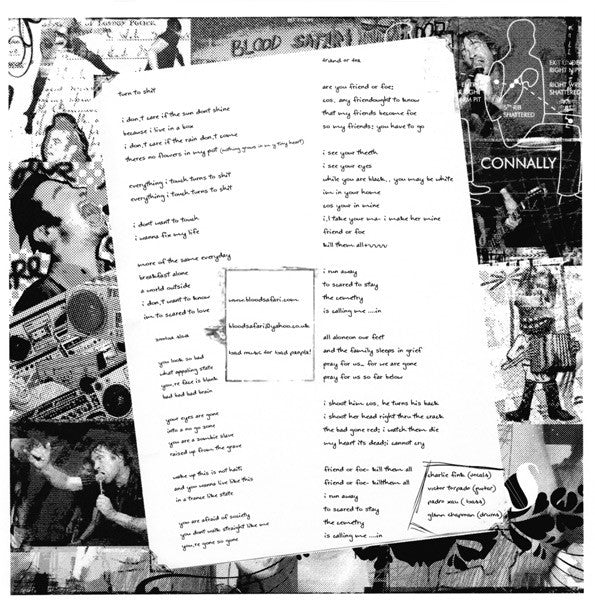 BLOOD SAFARI
turn to shit
i don,t care if the sun dont shine
because i live in a box
i don,t care if the rain don,t come
theres no flowers in my pot (nothing grows in my tiny heart)
everything i touch turns to shit
everything i touch turns to shit
i dont want to touch
i wanna fix my life
more of the same everyday
breakfast alone
a world outside
i don,t want to know
im to scared to love
zombie slave
you look so bad
what appaling state
you,re face is blank
bad bad bad brain
your eyes are gone
into a no go zone
you are a zombie slave
raised up from the grave
wake up this is not haiti
and you wanna live like this
in a trance like state
you are afraid of society
you dont walk straight like me
you,re gone so gone
www.bloodsafari.com
bloodsafari@yahoo.co.uk
bad music for bad people!
friend or foe
are you friend or foe;
cos, any friendought to know
that my friends become foe
so my friends; you have to go
i see your theeth
i see your eyes
while you are black,, you may be white
im in your home
cos your in mine
i,l take your man i make her mine
friend or foe
kill them all
i run away
to scared to stay
the cemetry
is calling me ....in
all aloneon our feet
and the family sleeps in grief
pray for us,, for we are gone
pray for us so far below
i shoot him cos, he turns his back
i shoot her head right thru the crack
the bad gone red; i watch them die
my heart its dead;i cannot cry
friend or foe- kill them all
friend or foe- killthem all
i run away
to scared to stay
the cemetry
is calling me ....in
charlie fink (vocals)
victor torpedo (guitar)
pedro xau (bass)
glenn chapman (drums)
RIGHT WR
SHATTERED
RIB
SHATTERED
CONNALLY